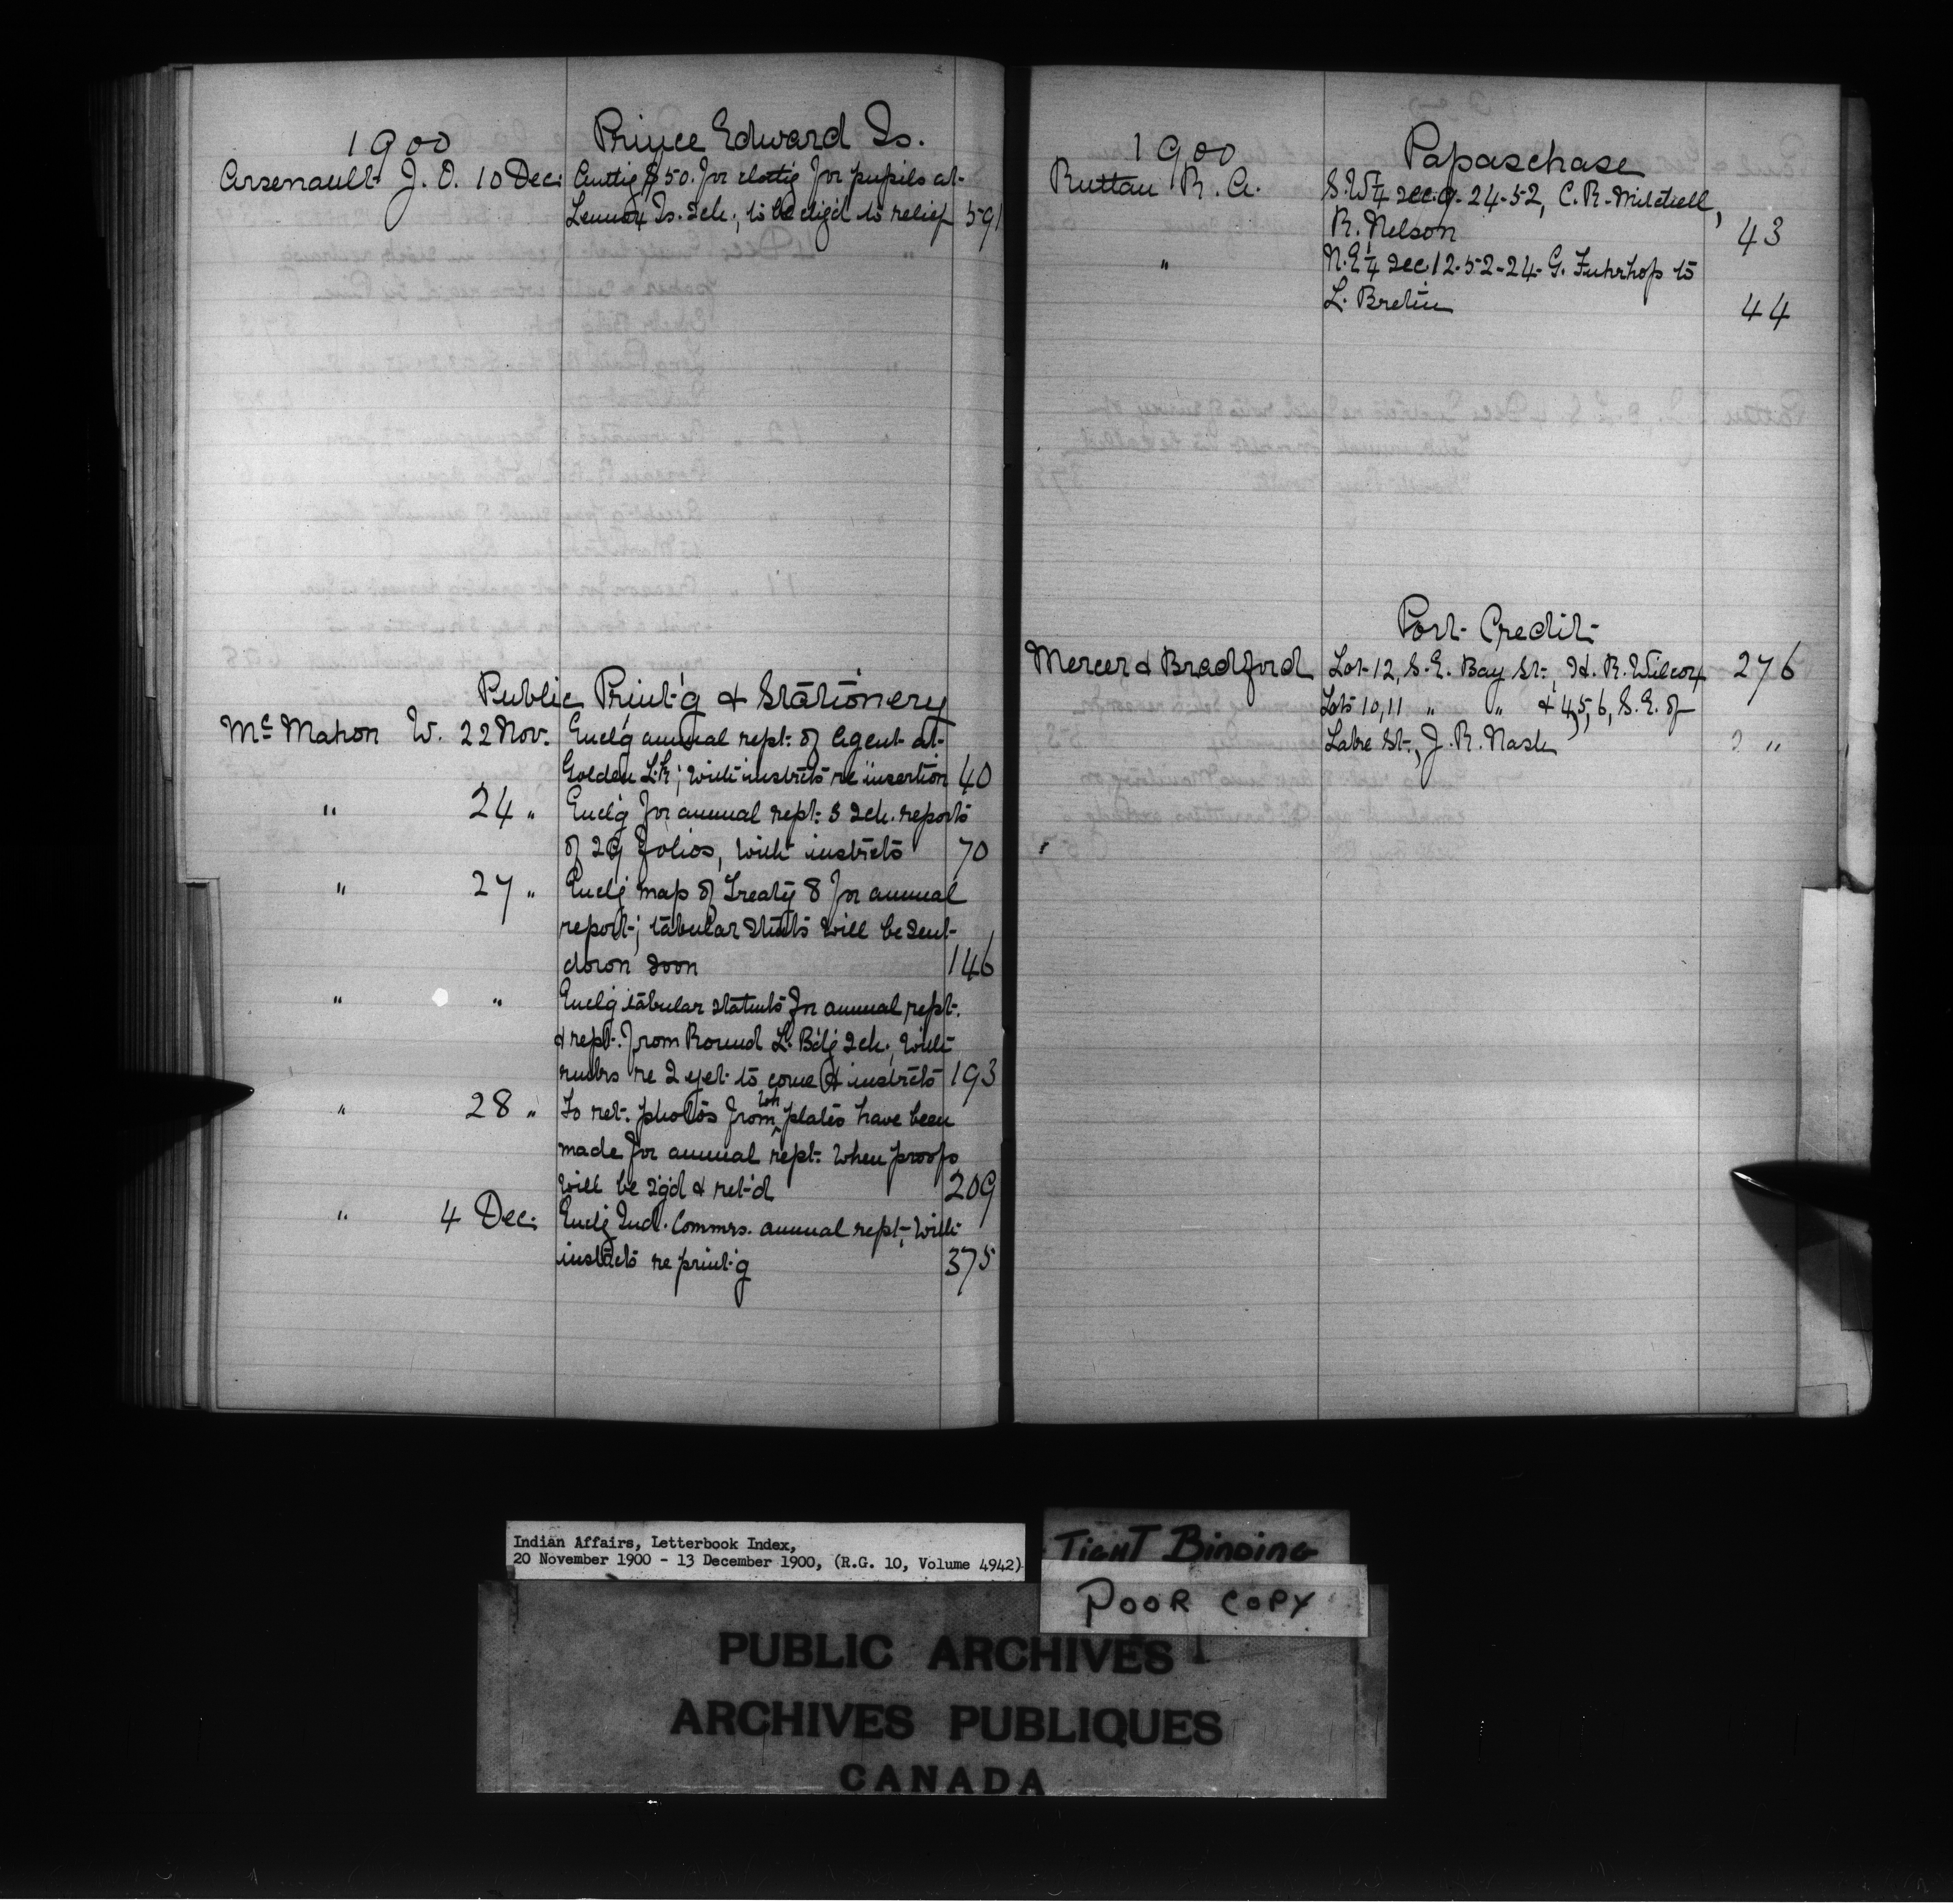 1900 Prince Edward Is.
Arsenault J. O. 10 Dec. Authg $50. for clothg for pupils at
Lennox Is. Sch., to be chg'd to relief 591
Public Print'g & Stationery
Mc Mahon W. 22 Nov. Enclg annual rept. of Agent at
Golden L.; with instrcts re insertion 40
" 24 " Enclg for annual rept. 3 Sch. reports
of 29 folios, with instrcts 70
" 27 " Enclg map of Treaty 8 for annual
report; tabular stmts will be sent
down soon 146
" " Enclg tabular statmts for annual rept.
& rept. from Round L. Bdg Sch., with
re 2 yet to come & instrcts 193
" 28 " To ret. photos from wh plates have been
made for annual rept. when proofs
will be and ret'd 209
" 4 Dec. Enclg Ind. Commrs. annual rept., with
instrcts re print'g 375
1900 Papaschase
Ruttan R. A. S.W¼ Sec. 9-24-52, C. R. Mitchell,
R. Nelson 43
" N.E¼ Sec. 12-52-24- G. Fuhrhop to
L. Bretin 44
Port Credit
Mercer & Bradford Lot 12, S.E. Bay St., H. R. Wilcox 276
Lots 10, 11 " " & 4, 5, 6, S.E. of
Lake St., J. R. Nash "
Indian Affairs, Letterbook Index,
20 November 1900 - 13 December 1900, (R.G. 10, Volume 4942)
TIGHT BINDING
POOR COPY
PUBLIC ARCHIVES
ARCHIVES PUBLIQUES
CANADA